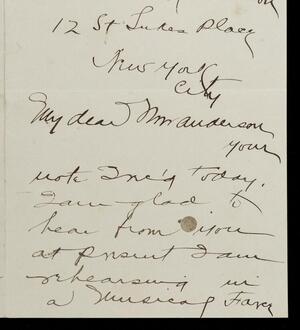 on
12 St Lukes Place
New York
City
My dear Mr anderson
your
note I rec'd today.
I am glad to
hear from you
at present I am
rehearsing in
a Musical Farce